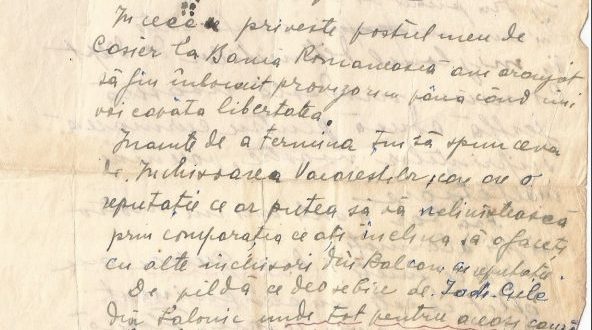 În ceea ce priveste postul meu de
Casier la Banca Românească am aranjat
să fiu înlocuit provizoriu până când îmi
voi căpăta libertatea.
Înainte de a termina țin să spun ceva
de Închisoarea Văcăreștilor, care are o
reputație ce ar putea să vă neliniștească
prin comparația ce ați înclina să o faceți
cu alte închisori din Balcani cu reputație.
De pildă ce deosebire de
din Salonic unde tot pentru aceași cauză